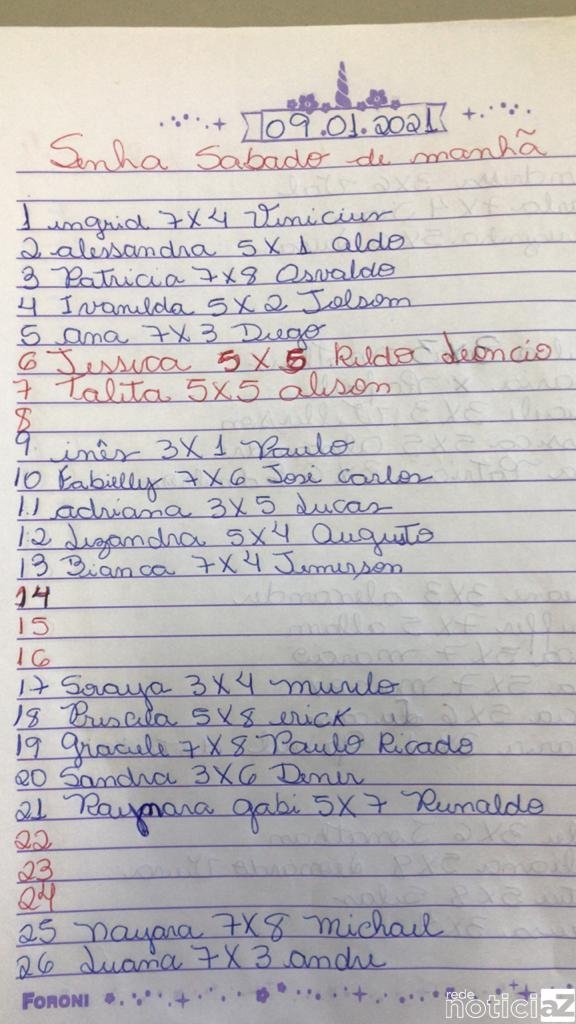 09.01.2021
Senha Sabado de manhã
1 ingrid 7X4 Vinicius
2 alessandra 5X1 aldo
3 Patricia 7X8 Osvaldo
4 Ivanilda 5X2 Jolsom
5 ana 7X3 Diego
6 Jessica 5X5 Rildo Leôncio
7 Talita 5X5 alison
8
9 inês 3X1 Paulo
10 Fabielly 7X6 José Carlos
11 adriana 3X5 Lucas
12 Lizandra 5X4 Augusto
13 Bianca 7X4 Jemerson
14
15
16
17 Soraya 3X4 murilo
18 Priscila 5X8 erick
19 Graciele 7X8 Paulo Ricado
20 Sandra 3X6 Dener
21 Raymara gabi 5X7 Runaldo
22
23
24
25 nayara 7X8 michael
26 Luana 7X3 andre
FORONI
rede
noticiaz